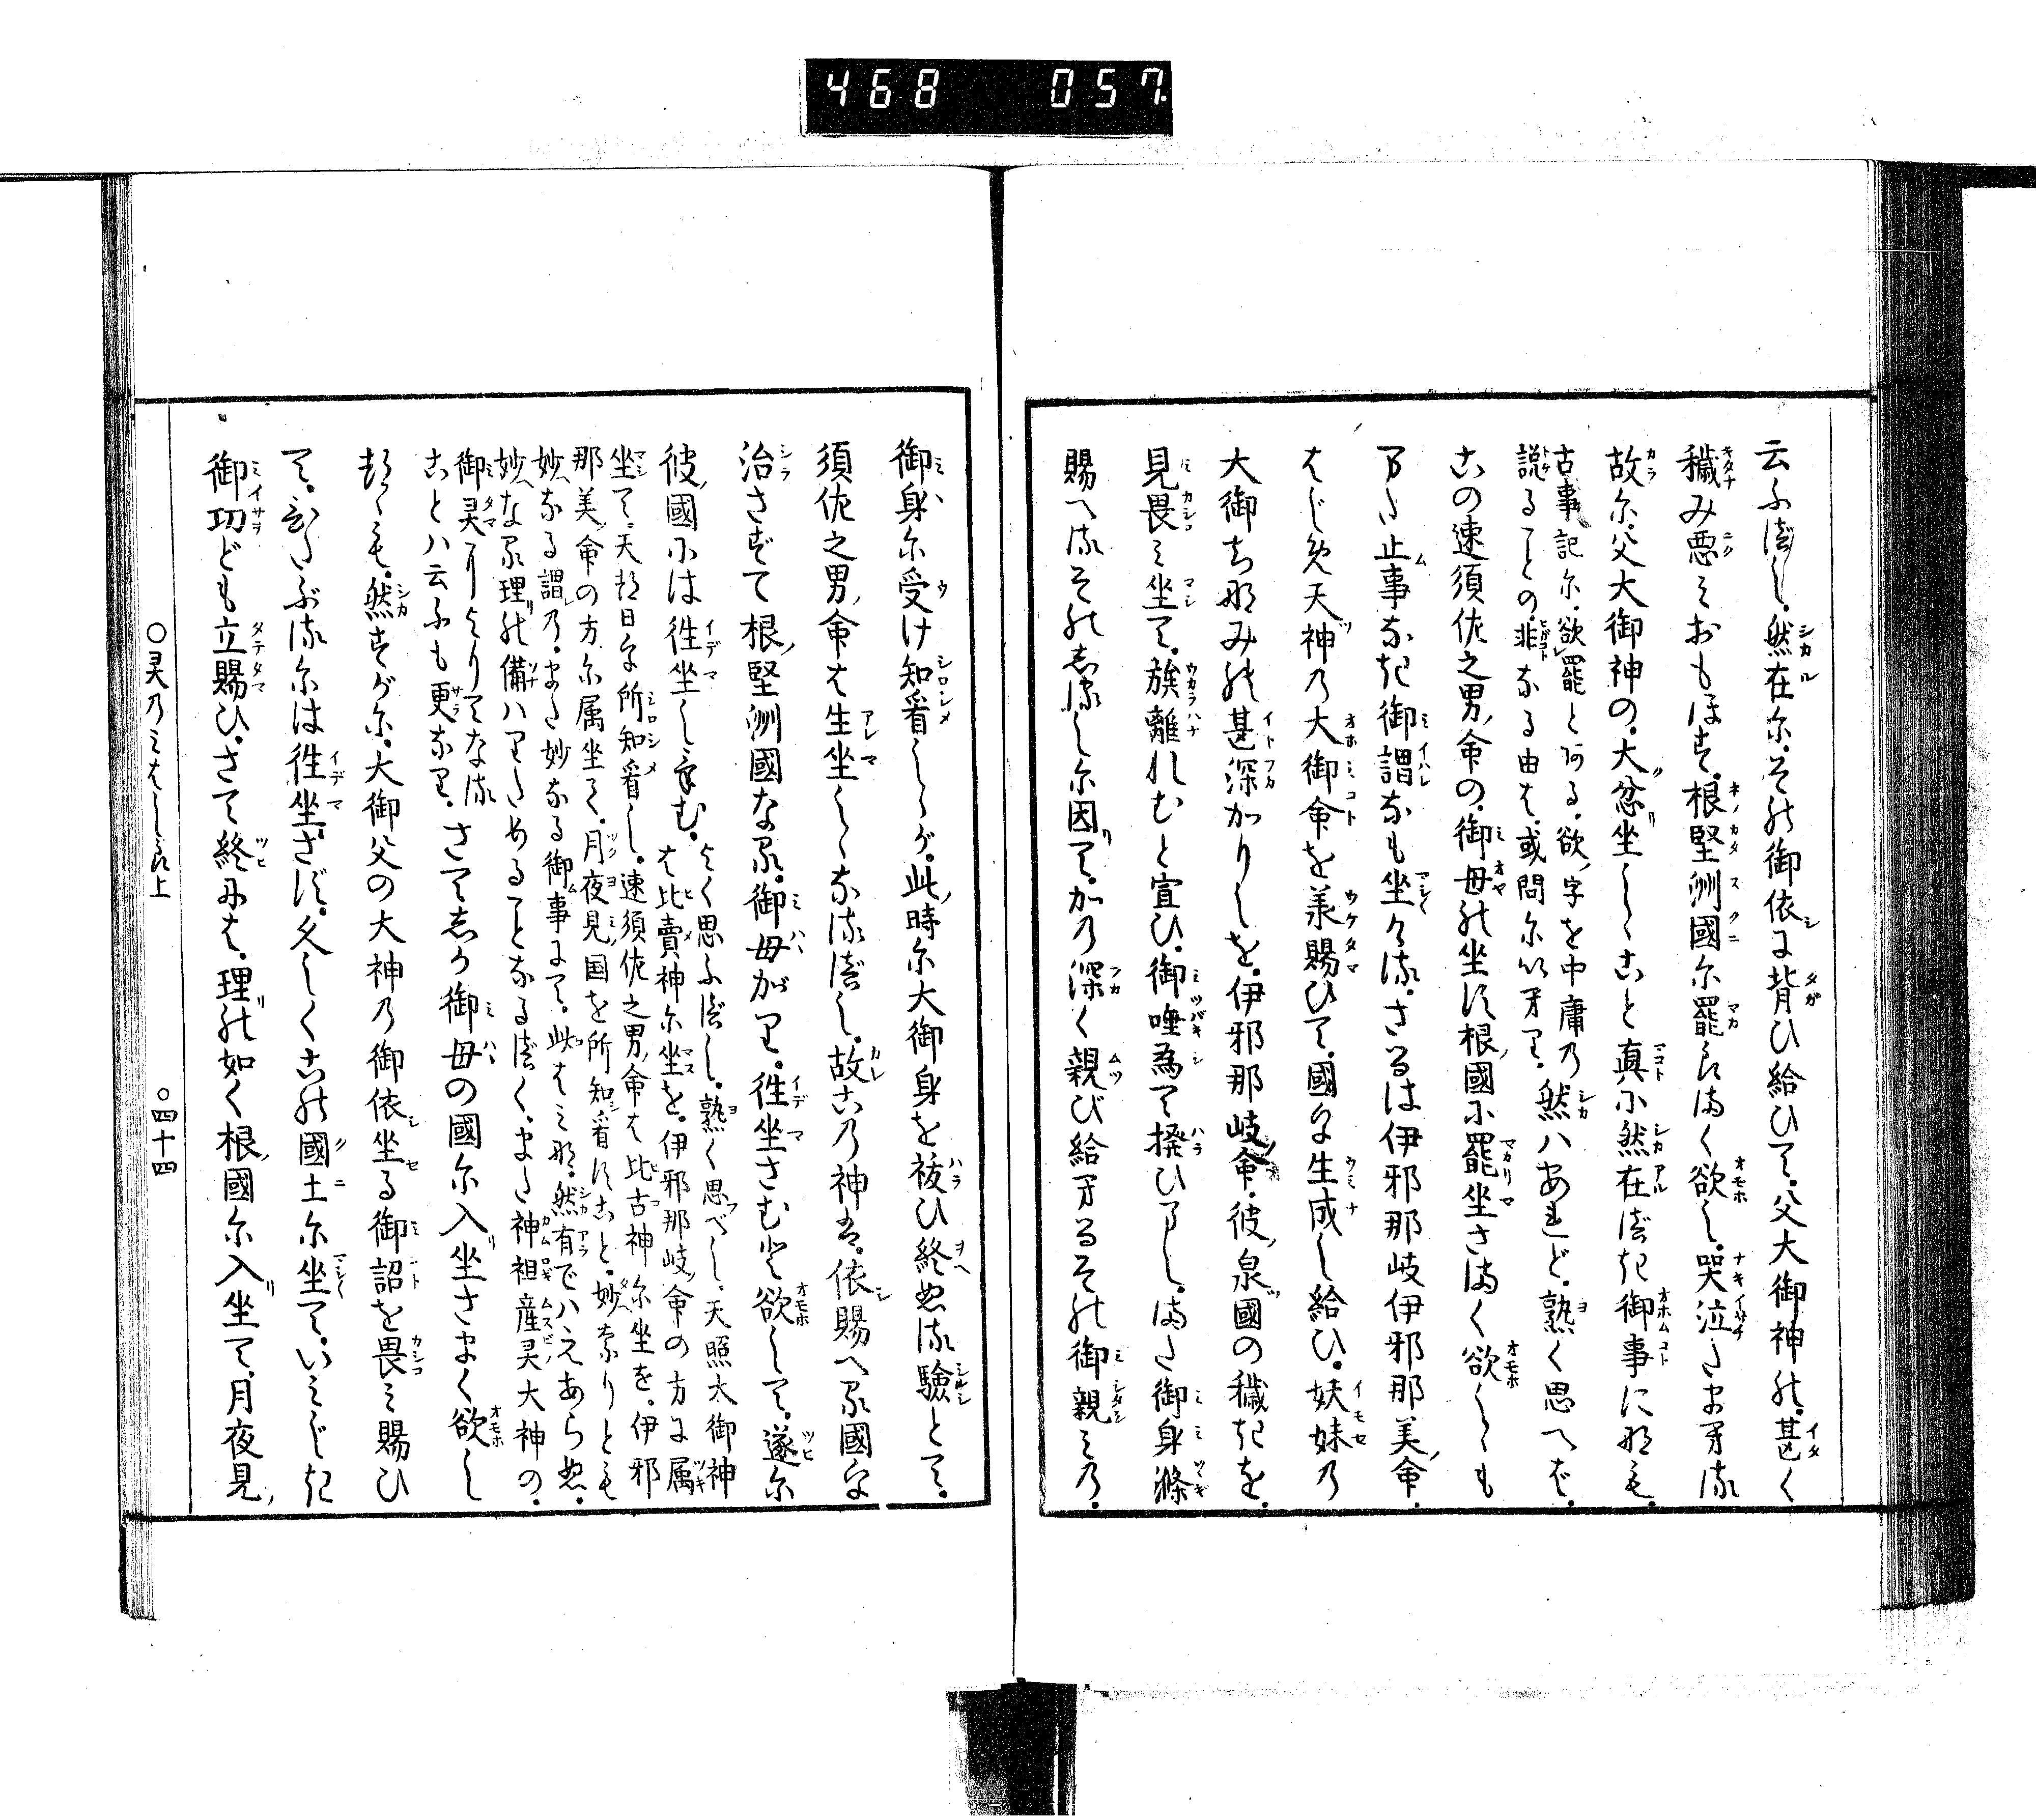 468 057
云ふべし。然在に。その御依に背ひ給ひて。父大御神の。甚く
穢み悪みおもほす。根堅洲國に罷らまく欲し。哭泣たまへる
故に。父大御神の。大忿坐しゝこと真に然在べき御事になも。
古事記に。欲罷とある。欲字を中庸の然ハあれど。熟く思へば。
説ることの。非なる由は。或問に云へり。
この速須佐之男命の。御母の坐す根國に罷坐さまく欲しゝも
また止事なき御謂なも坐ける。さるは伊邪那岐伊邪那美命。
はじめ天神の大御命を羕賜ひて。國を生成し給ひ。妋妹の
大御ちなみの甚深かりしを。伊邪那岐命。彼泉國の穢きを。
見畏み坐て。族離れむと宣ひ。御唾為て撥ひまし。また御身滌
賜へるその志るしに因て。かの深く親び給へるその御親みの。
御身に受け知看しゝが。此時に大御身を祓ひ終ぬる驗とて。
須佐之男命は生坐しゝなるべし。故この神は。依賜へる國を
治さずて根堅洲國なる。御母がり。徃坐さむと欲して。遂に
彼國には徃坐しけむ。
よく思ふべし。熟く思べし。天照大御神
は比賣神に坐を。伊邪那岐命の方に属
坐て。天つ日を所知看し。速須佐之男命は比古神に坐を。伊邪
那美命の方に属坐て。月夜見国を所知看すこと。妙なりとも
妙なる謂の。また妙なる御事にて。此はみな。然有でハえあらぬ。
妙な る理の備ハりためることなるべく。また神祖産灵大神の。
御灵によりてなる
ことハ云ふも更なり。さてしか御母の國に入坐さまく欲し
つゝも。然すがに。大御父の大神の御依坐る御詔を畏み賜ひ
て。ひたぶるには徃坐さず。久しくこの國土に坐て。いみじき
御功ども立賜ひ。さて終には。理の如く根國に入坐て。月夜見
○灵乃みはしら上 ○四十四